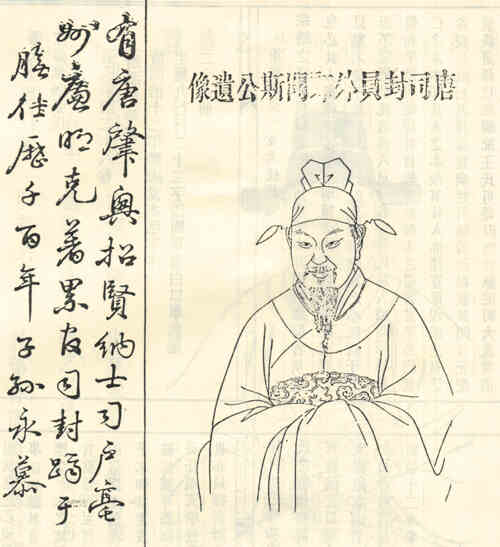 唐司封員外郎聞斯公遺像
有唐肇興招賢納士司戶亳
州廉明克著累官司封躋于
膴仕歷千百年子孫永慕